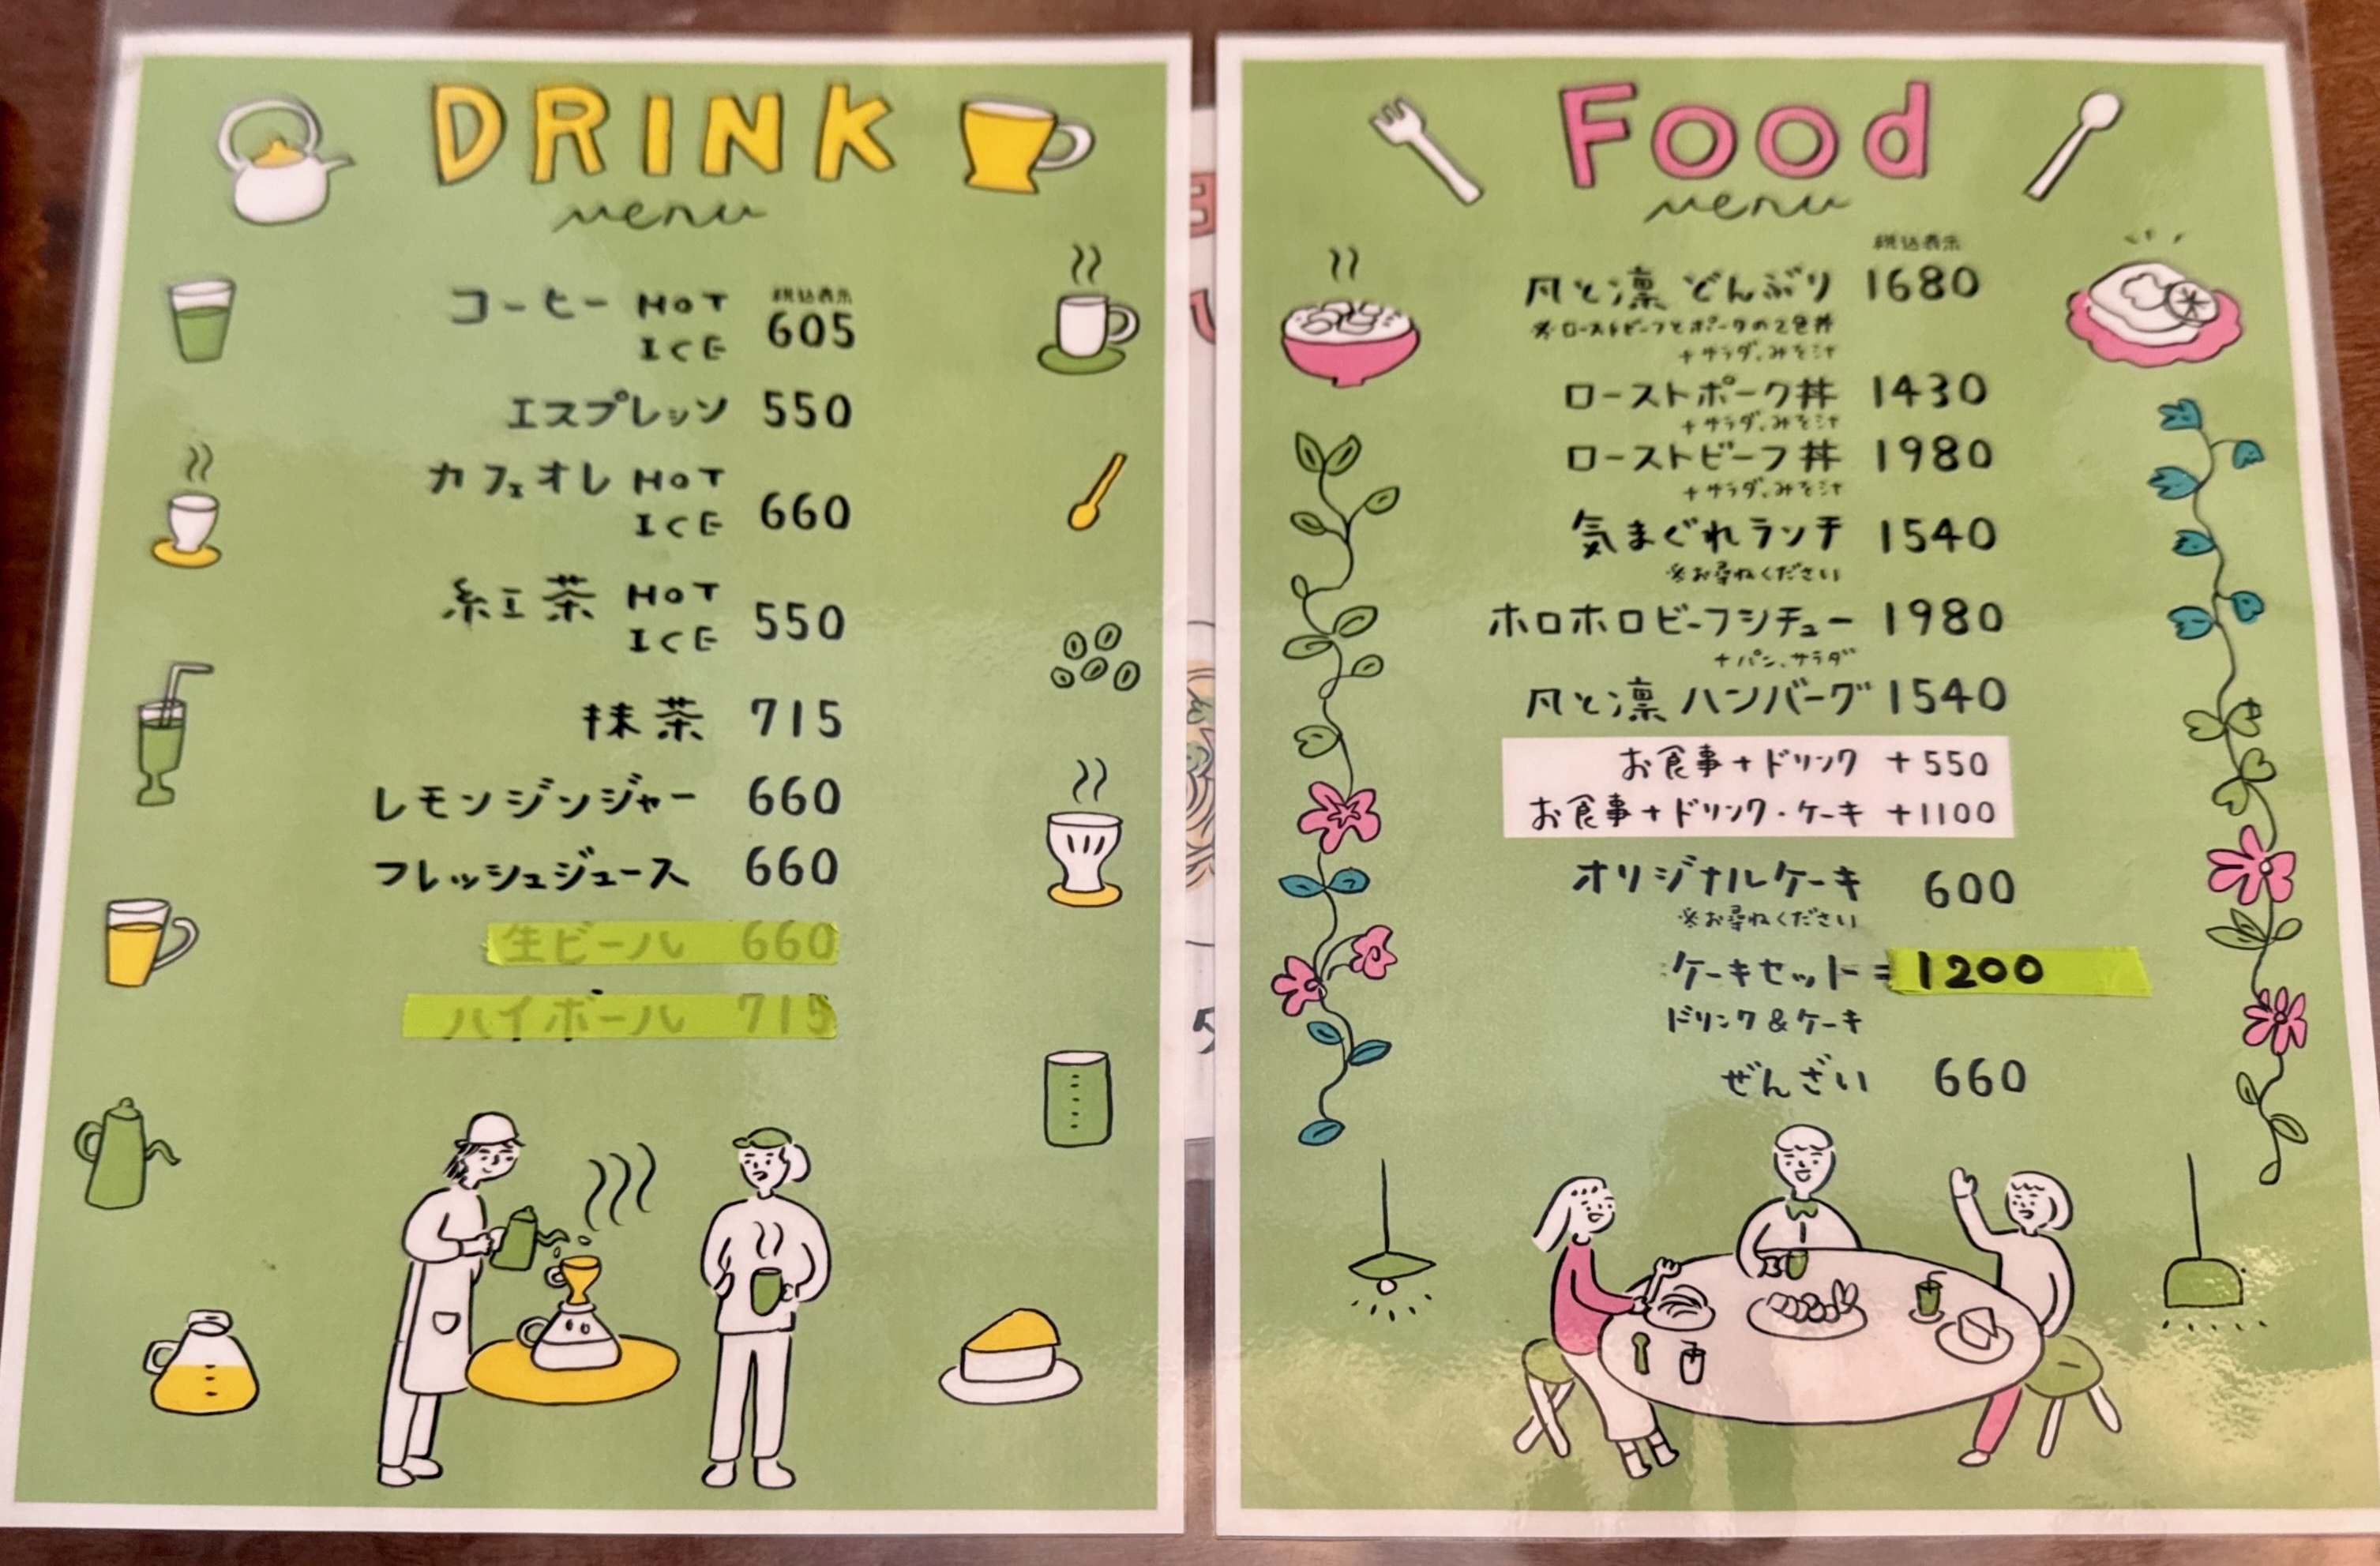 DRINK
menu
税込表示
コーヒー HOT
ICE 605
エスプレッソ 550
カフェオレ HOT
ICE 660
紅茶 HOT
ICE 550
抹茶 715
レモンジンジャー 660
フレッシュジュース 660
生ビール 660
ハイボール 715
Food
menu
税込表示
凡と凛 どんぶり 1680
※ローストビーフとポークの2色丼
+サラダ、みそ汁
ローストポーク丼 1430
+サラダ、みそ汁
ローストビーフ丼 1980
+サラダ、みそ汁
気まぐれランチ 1540
※お尋ねください
ホロホロビーフシチュー 1980
+パン、サラダ
凡と凛 ハンバーグ 1540
お食事+ドリンク +550
お食事+ドリンク・ケーキ +1100
オリジナルケーキ 600
※お尋ねください
ケーキセット= 1200
ドリンク&ケーキ
ぜんざい 660